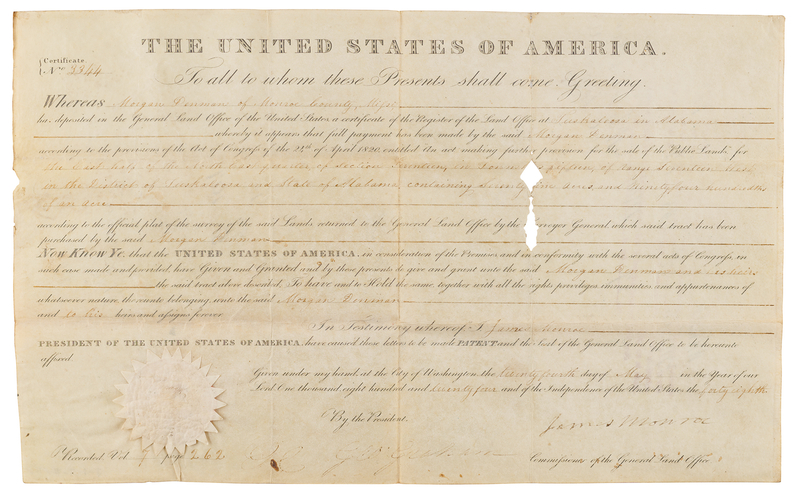 THE UNITED STATES OF AMERICA.
Certificate
No. 3344
To all to whom these Presents shall come, Greeting.
Whereas Morgan Denman of Monroe County,
has deposited in the General Land Office of the United States, a certificate of the Register of the Land Office at Tuskaloosa in Alabama
whereby it appears that full payment has been made by the said Morgan Denman
according to the provisions of the Act of Congress of the 24th of April 1820, entitled An act making further provision for the sale of the Public Lands, for
the East half of the South East quarter of Section in of range
in the District of Tuskaloosa and State of Alabama, containing Seventy acres, and Ninety four hundredths
of an acre
according to the official plat of the survey of the said Lands returned to the General Land Office by the General which said tract has been
purchased by the said Morgan Denman
Now Know Ye, that the UNITED STATES OF AMERICA, in consideration of the Premises and in conformity with the several acts of Congress, in
such case made and provided have Given and Granted and by these presents do give and grant unto the said Morgan Denman and his heirs
the said tract above described, To have and to Hold the same, together with all the rights, privileges, immunities and appurtenances of
whatsoever nature, thereunto belonging, unto the said Morgan Denman
and to his heirs and assigns forever.
In Testimony whereof, I James Monroe
PRESIDENT OF THE UNITED STATES OF AMERICA, have caused these letters to be made PATENT and the Seal of the General Land Office to be hereunto
affixed.
Given under my hand, at the City of Washington, the twenty fourth day of May in the Year of our
Lord One thousand eight hundred and twenty four and of the Independence of the United States, the forty eighth
By the President.
James Monroe
Recorded Vol. page 262
Commissioner of the General Land Office